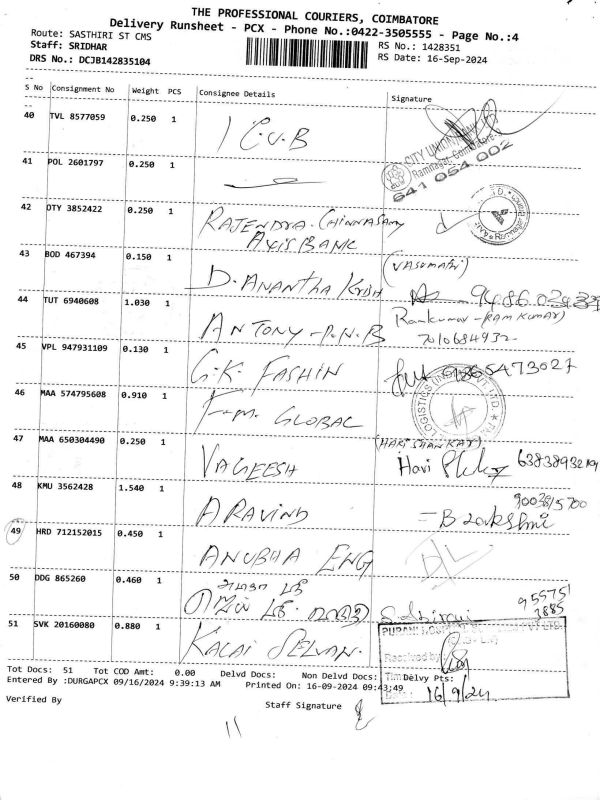 THE PROFESSIONAL COURIERS, COIMBATORE
Delivery Runsheet - PCX - Phone No.:0422-3505555 - Page No.:4
Route: SASTHIRI ST CMS
RS No.: 1428351
Staff: SRIDHAR
RS Date: 16-Sep-2024
DRS No.: DCJB142835104
S No Consignment No Weight PCS Consignee Details Signature
40 TVL 8577059 0.250 1 C.U.B
CITY UNION BANK
641 054 002
41 POL 2601797 0.250 1
42 OTY 3852422 0.250 1 RAJENDRA CHINNASAMY
AXIS BANK
43 BOD 467394 0.150 1 D. ANANTHA KRISH
(VASUMATHI)
44 TUT 6940608 1.030 1 ANTONY - P.N.B
Ramkumar - (RAM KUMAR)
7010684932
45 VPL 947931109 0.130 1 G.K. FASHIN
46 MAA 574795608 0.910 1 F.M. GLOBAL
47 MAA 650304490 0.250 1 VAGEESH
(HARI SHANKAR)
Hari
48 KMU 3562428 1.540 1 ARAVIND
49 HRD 712152015 0.450 1 ANUBHA ENG DL
50 DDG 865260 0.460 1
95575
3885
51 SVK 20160080 0.880 1 KALAI SELVAN.
Received by
16/9/24
Tot Docs: 51 Tot COD Amt: 0.00 Delvd Docs: Non Delvd Docs: Delvy Pts:
Entered By :DURGAPCX 09/16/2024 9:39:13 AM Printed On: 16-09-2024 09:43:49
Verified By Staff Signature